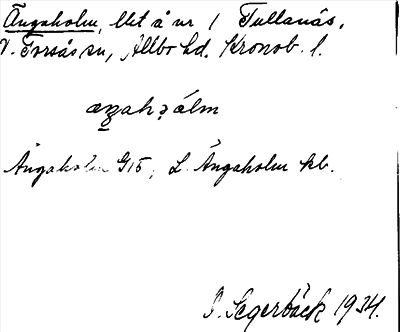 Ängaholm, lht å nr 1 Tullanäs,
V. Torsås sn, Allbo hd. Kronob. l.
Ängaholm G15, L. Ängaholm kb.
S. Segerbäck 1934.